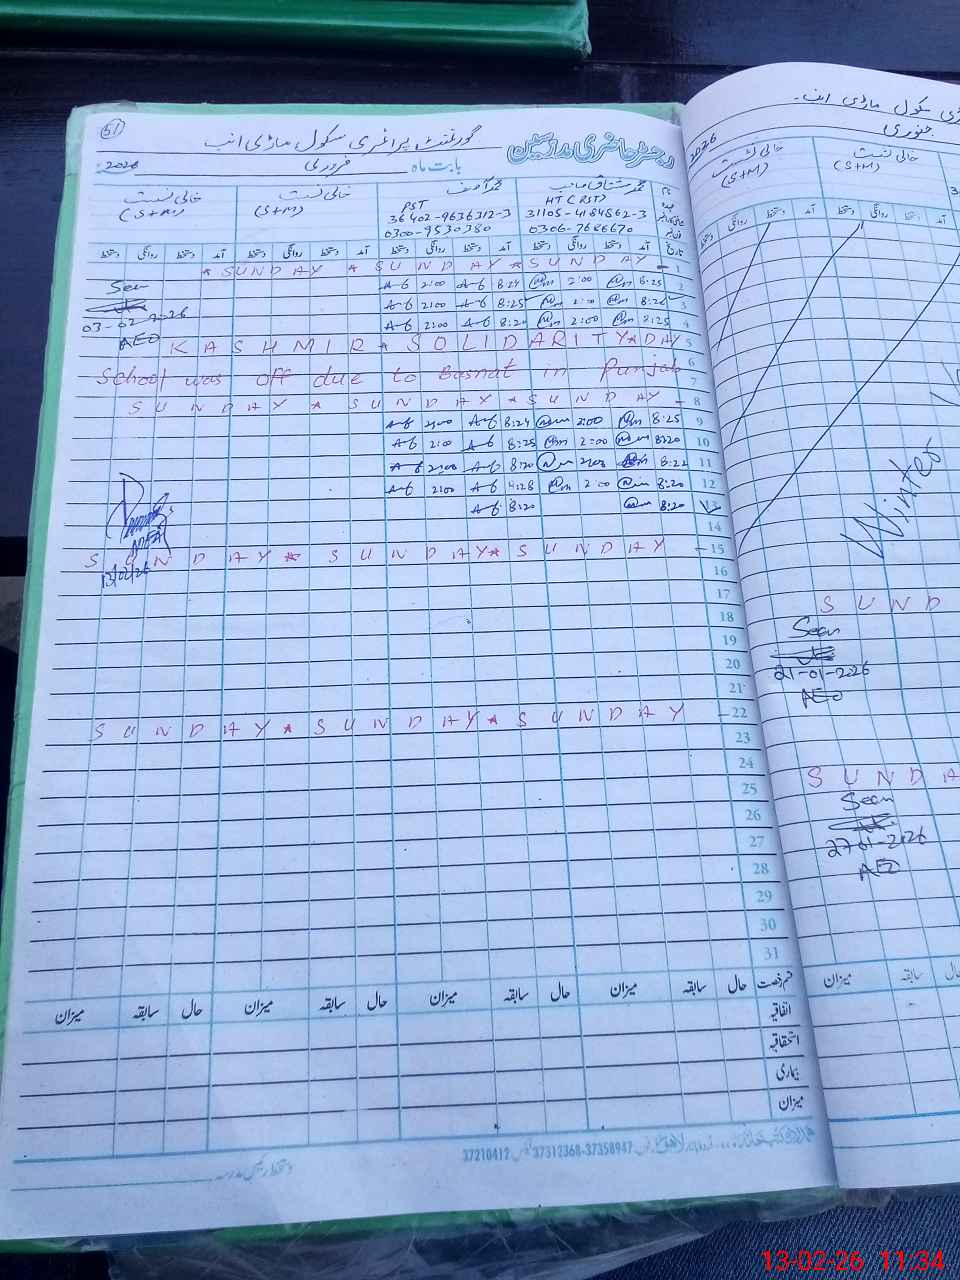 51
گورنمنٹ پرائمری سکول ماڑی انب
رجسٹر حاضری مدرسین
بابت ماہ فروری 2026
خالی نشست (S+M)
خالی نشست (S+M)
PST
36402-9636312-3
0300-9530380
محمد مشتاق صاحب
HT (RST)
31105-4184862-3
0306-7686670
تاریخ آمد دستخط روانگی دستخط آمد دستخط روانگی دستخط آمد دستخط روانگی دستخط آمد دستخط روانگی دستخط
★ SUNDAY ★ SUNDAY ★ SUNDAY 1
2:00 8:24 2:00 8:25 2
2:00 8:25 2:00 3
2:00 2:00 8:25 4
Seen
03-02-2026
AEO
KASHMIR ★ SOLIDARITY ★ DAY 5
6
School was off due to Basnat in Punjab
7
SUNDAY ★ SUNDAY ★ SUNDAY 8
8:24 2:00 8:25 9
2:00 8:25 2:00 8:20 10
2:00 8:20 2:00 11
2:00 2:00 8:20 12
8:20 8:20 13
14
SUNDAY ★ SUNDAY ★ SUNDAY 15
13/02/26
16
17
18
19
20
21
SUNDAY ★ SUNDAY ★ SUNDAY 22
23
24
25
26
27
28
29
30
31
قسم رخصت حال سابقہ میزان حال سابقہ میزان حال سابقہ میزان حال سابقہ میزان
اتفاقیہ
استحقاقیہ
بیماری
میزان
37210412 37312368-37358947
دستخط رئیس مدرسہ
سکول ماڑی انب
جنوری
2026
خالی نشست
(S+M)
خالی نشست
(S+M)
دستخط روانگی دستخط آمد دستخط روانگی دستخط آمد
Winter
SUND
Seen
21-01-2026
AEO
SUNDA
Seen
27-01-2026
AEO
میزان سابقہ حال
13-02-26 11:34